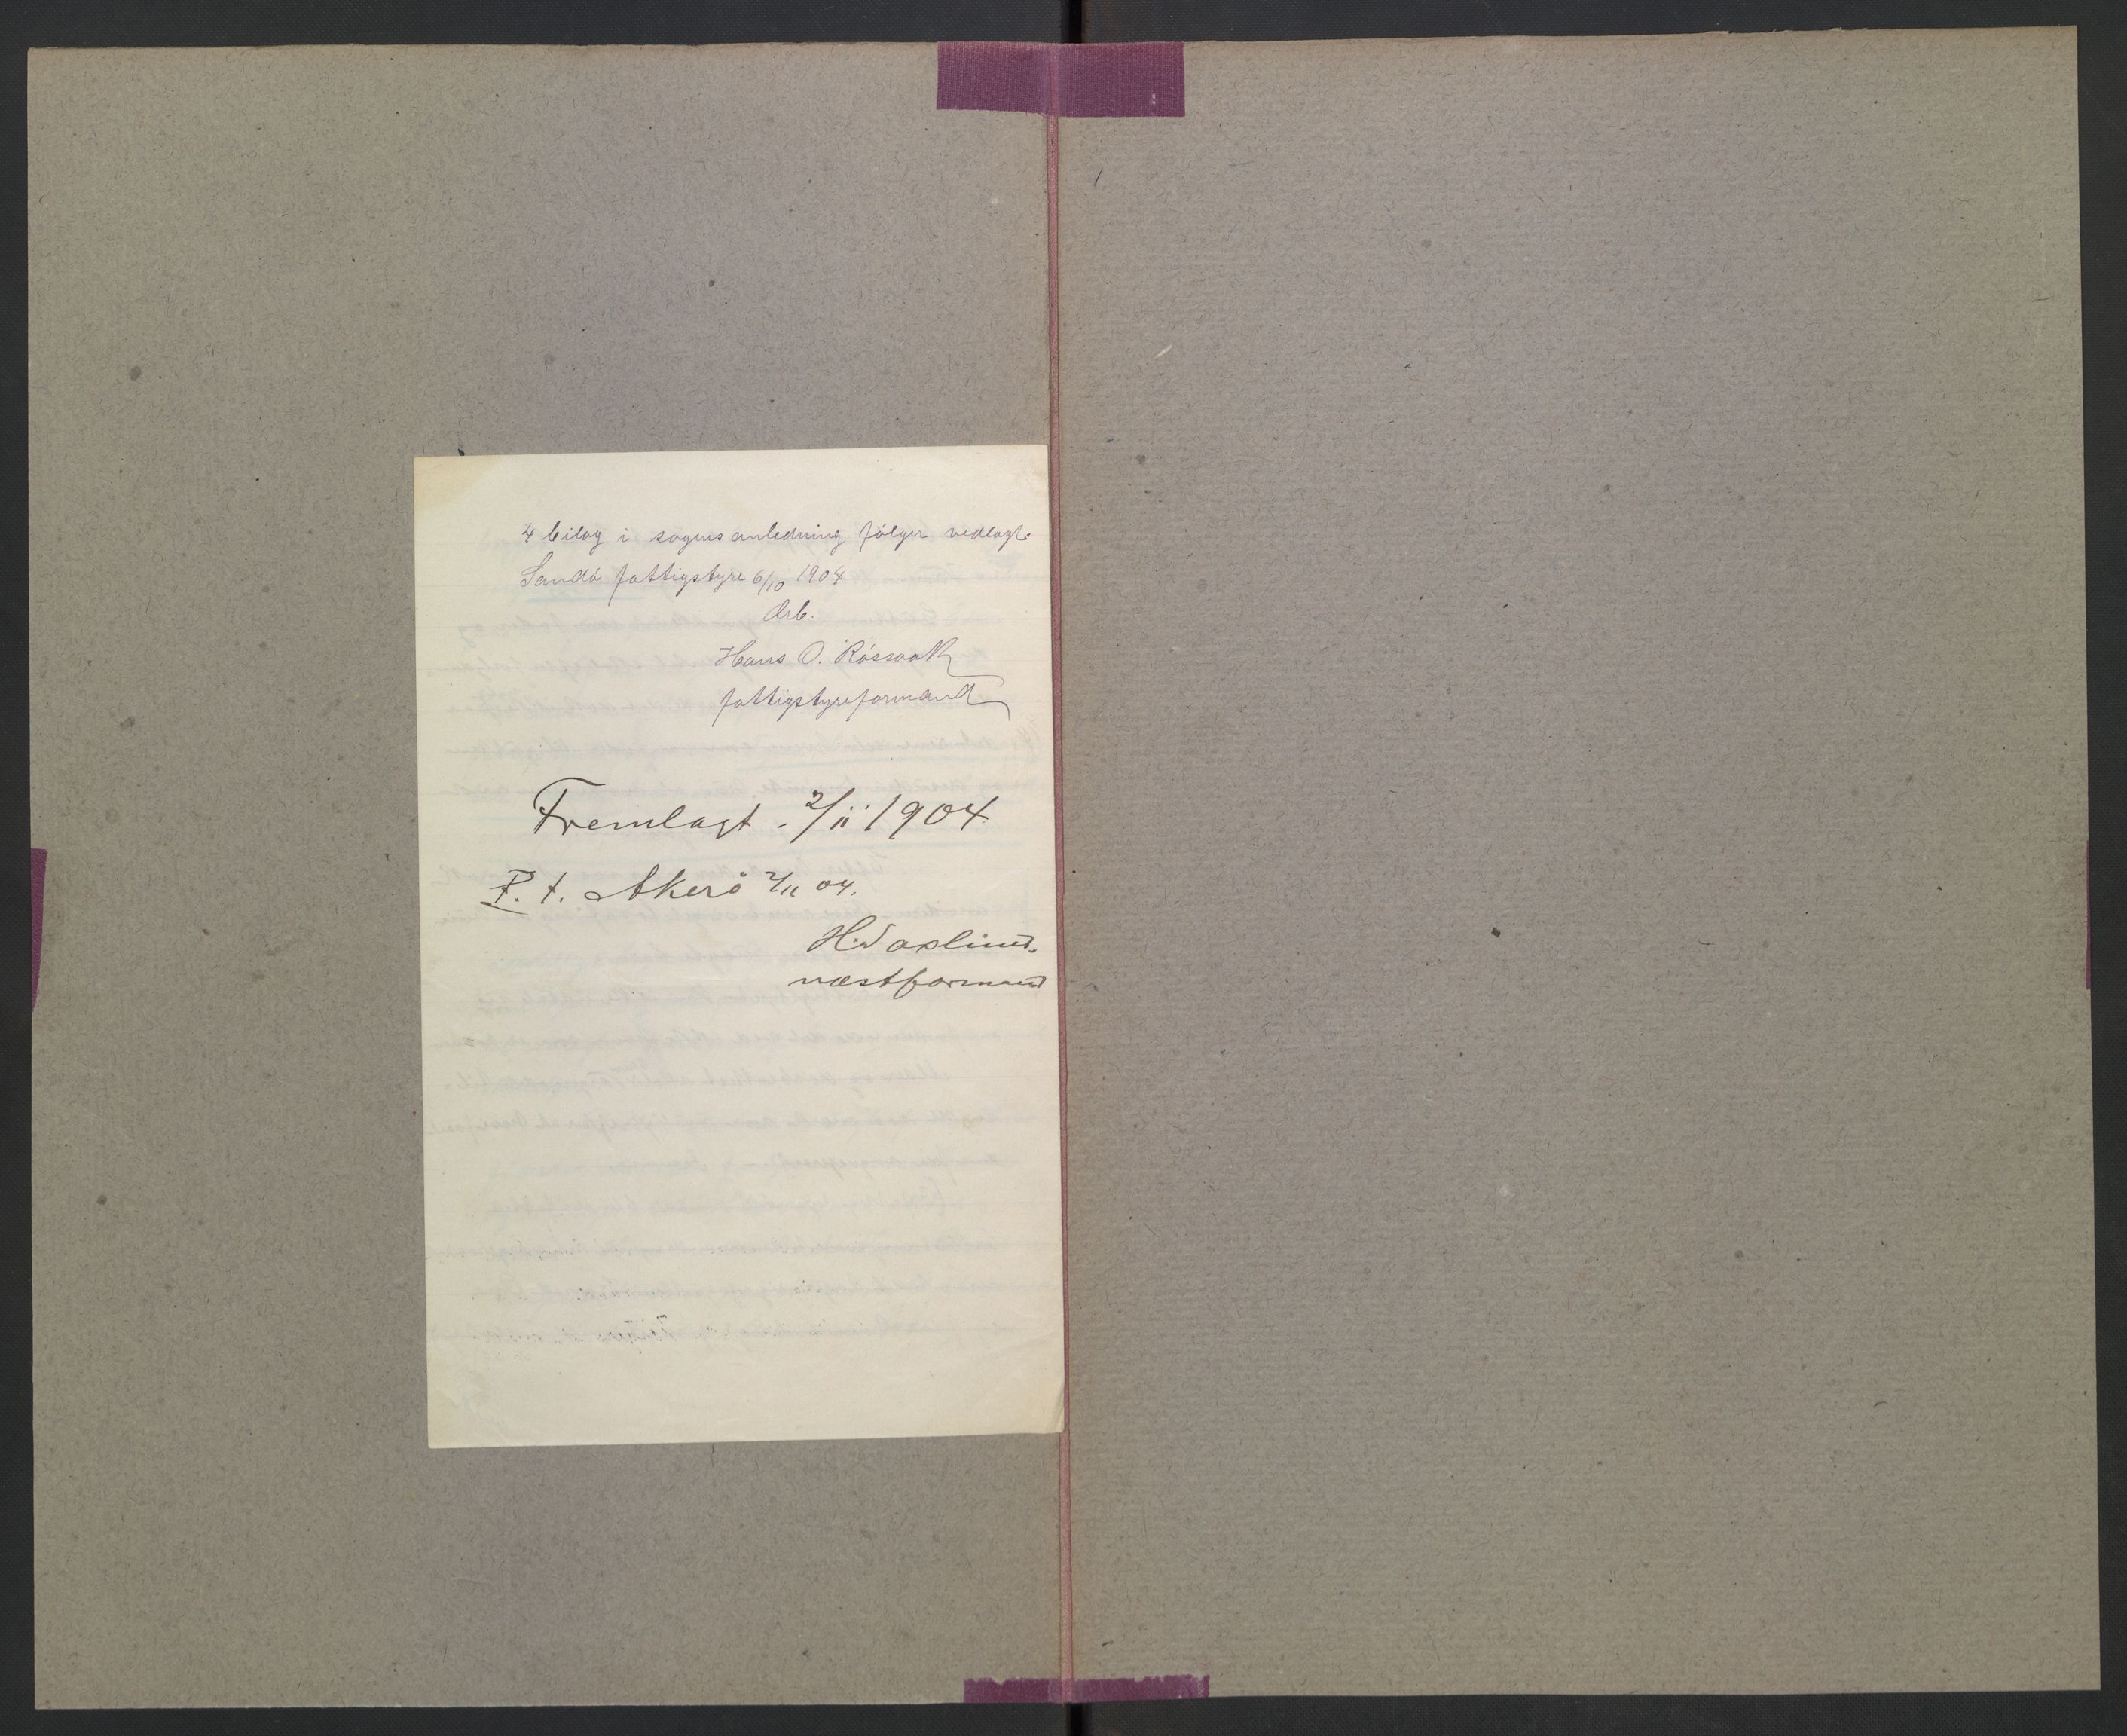 4 bilag i sagens anledning følger vedlagt.
Sandø fattigstyre 6/10 1904
Ærb.
Hans O. Røsvok
fattigstyreformand
Fremlagt. 2/11 1904.
P. t. Akerø 2/11 04.
H. Saxlund.
næstformand